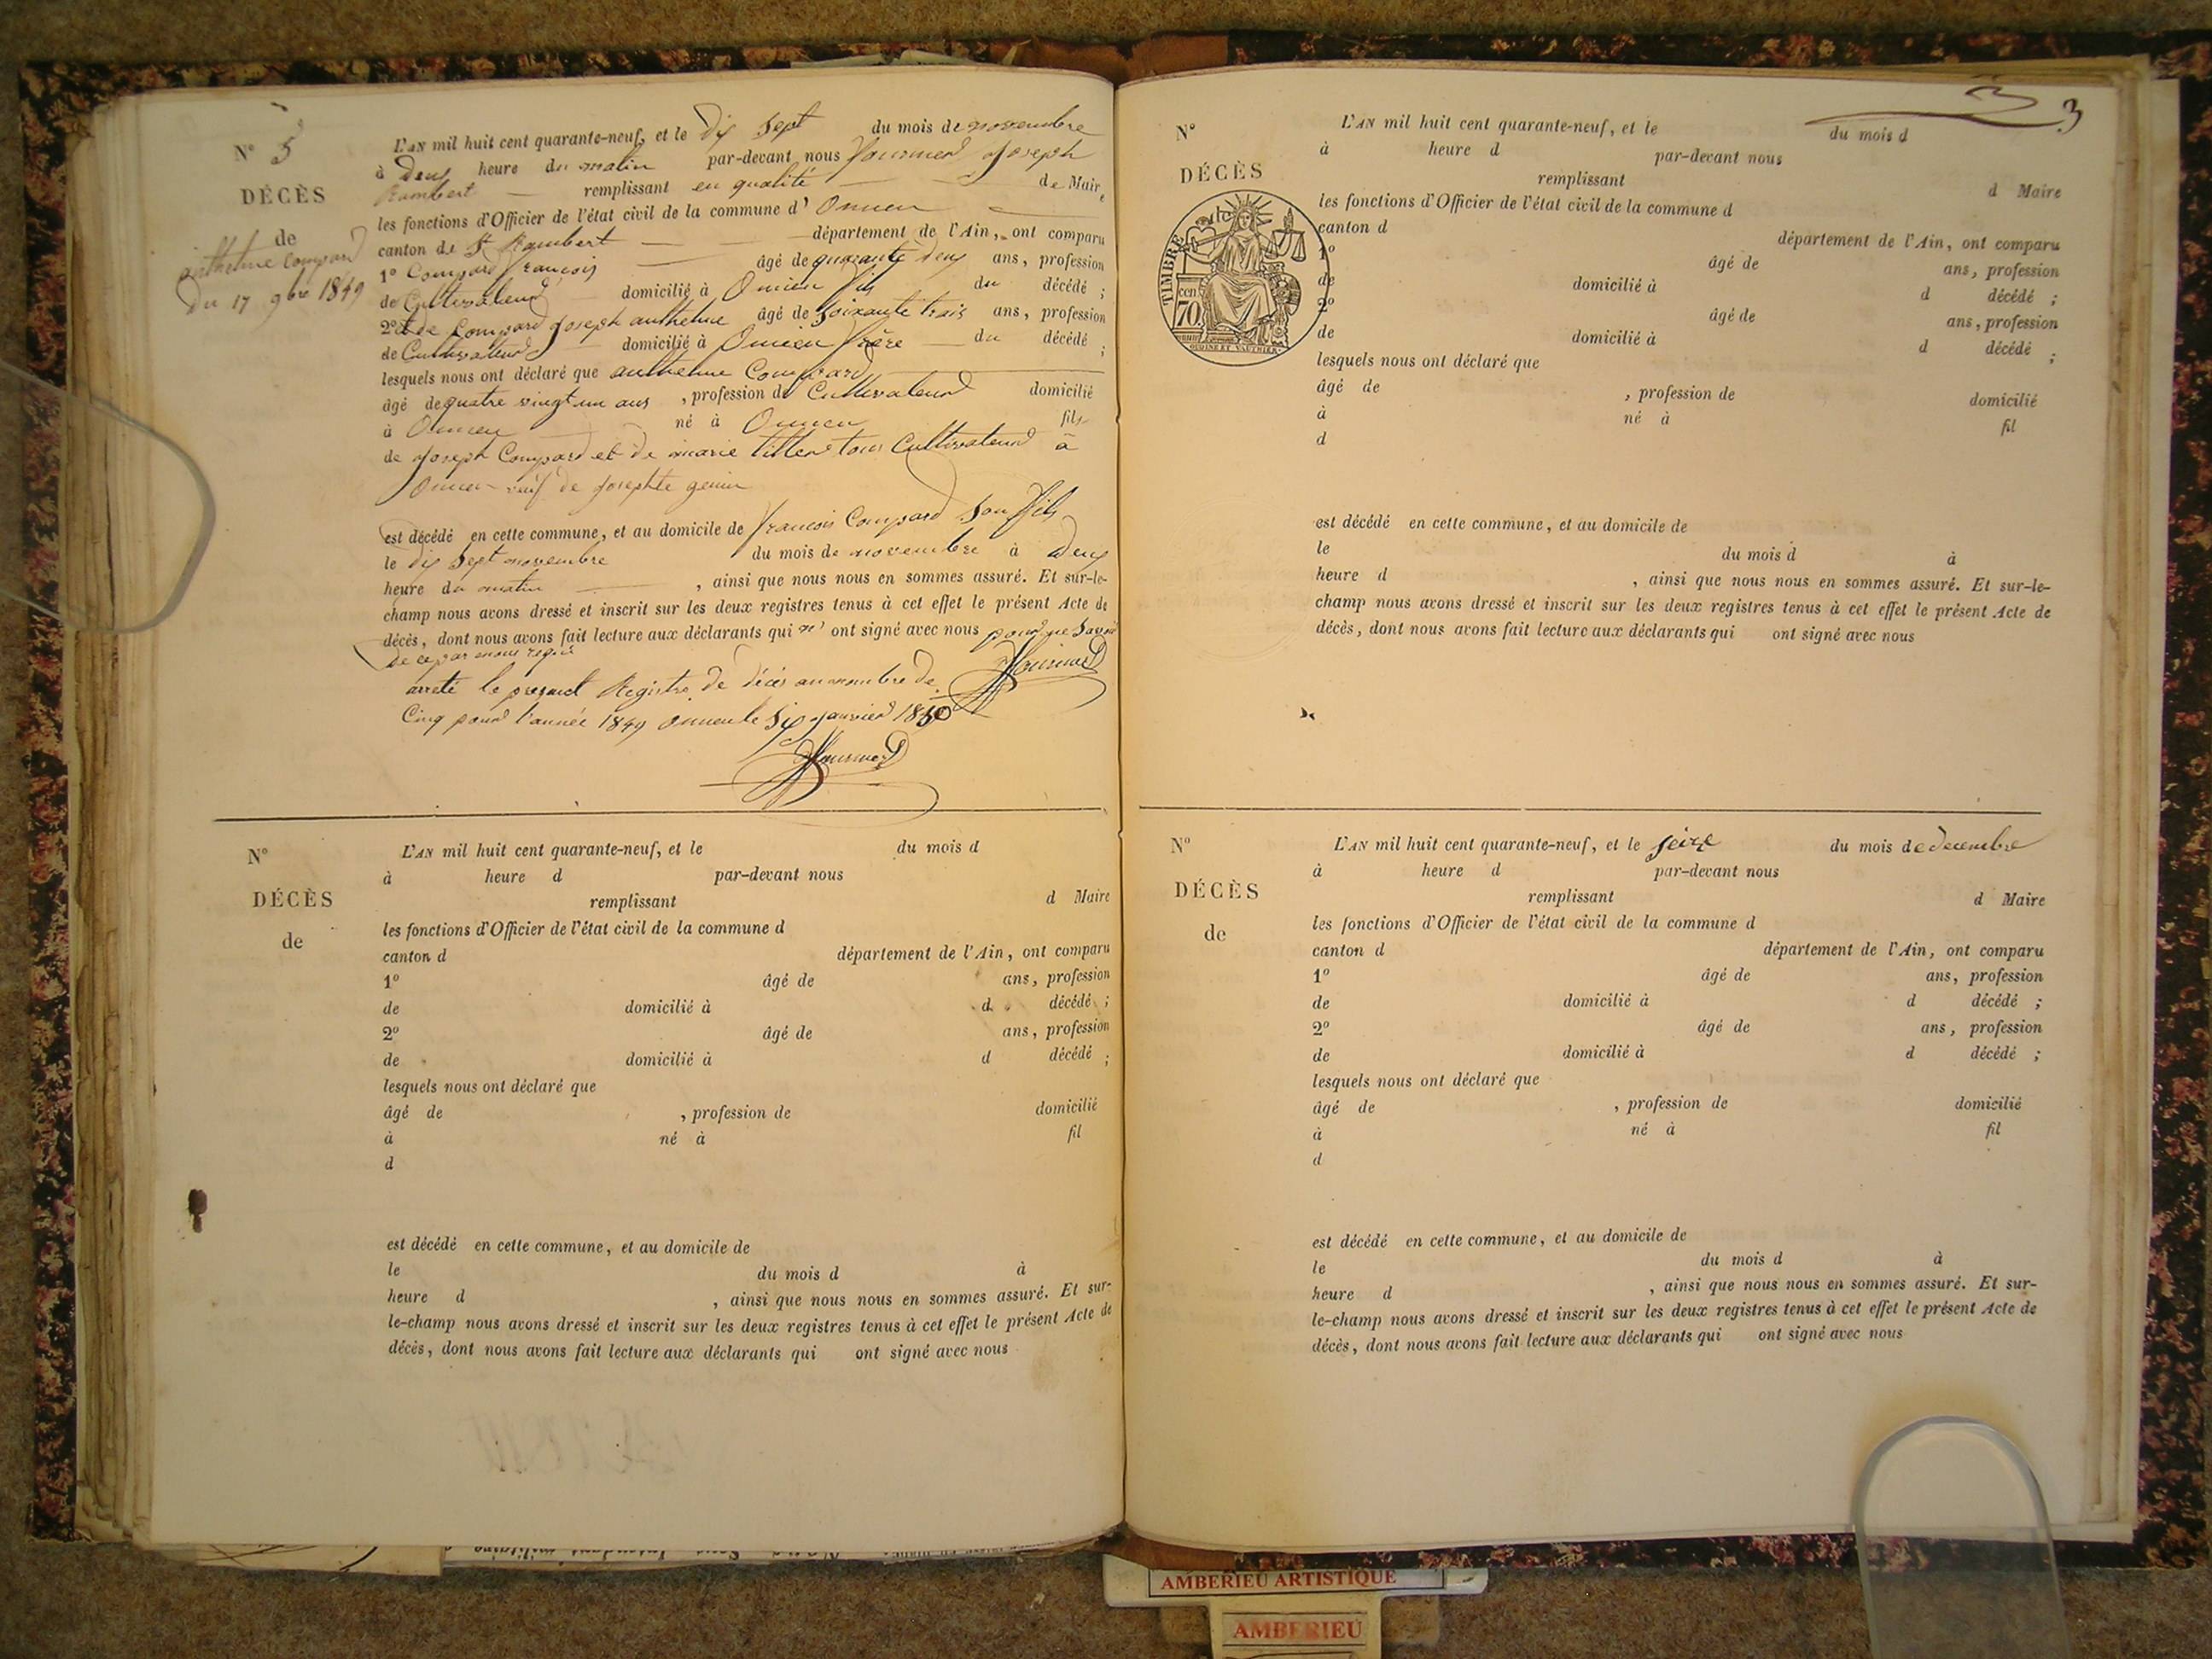 N° 5
DÉCÈS
de
anthelme Compard
Du 17 9bre 1849
L'AN mil huit cent quarante-neuf, et le dix sept du mois de novembre
à Deux heure du matin par-devant nous fournier Joseph
Rambert remplissant en qualité de Maire
les fonctions d'Officier de l'état civil de la commune d' Oncieu
canton de St Rambert département de l'Ain, ont comparu
1° Compard francois âgé de quarante deux ans, profession
de Cultivateur domicilié à Oncieu fils du décédé ;
2° Compard Joseph anthelme âgé de Soixante trois ans, profession
de Cultivateur domicilié à Oncieu frère du décédé ;
lesquels nous ont déclaré que anthelme Compard
âgé de quatre vingt un ans , profession de Cultivateur domicilié
à Oncieu né à Oncieu fils
de Joseph Compard et de marie tous Cultivateur à
Oncieu veuf de Josephte genin
est décédé en cette commune, et au domicile de francois Compard Son fils
le dix Sept novembre du mois de novembre à deux
heure du matin , ainsi que nous nous en sommes assuré. Et sur-le-
champ nous avons dressé et inscrit sur les deux registres tenus à cet effet le présent Acte de
décès, dont nous avons fait lecture aux déclarants qui n' ont signé avec nous pour ne Savoir
de ce par nous requis
fournier
arreté le present Registre de décès au nombre de
Cinq pour l'année 1849 Oncieu le Six Janvier 1850
fournier
N°
DÉCÈS
de
L'AN mil huit cent quarante-neuf, et le du mois d
à heure d par-devant nous
remplissant d Maire
les fonctions d'Officier de l'état civil de la commune d
canton d département de l'Ain, ont comparu
1° âgé de ans, profession
de domicilié à d décédé ;
2° âgé de ans, profession
de domicilié à d décédé ;
lesquels nous ont déclaré que
âgé de , profession de domicilié
à né à fil
d
est décédé en cette commune, et au domicile de
le du mois d à
heure d , ainsi que nous nous en sommes assuré. Et sur-
le-champ nous avons dressé et inscrit sur les deux registres tenus à cet effet le présent Acte de
décès, dont nous avons fait lecture aux déclarants qui ont signé avec nous
3
N°
DÉCÈS
TIMBRE
cen.
70.
L'AN mil huit cent quarante-neuf, et le du mois d
à heure d par-devant nous
remplissant d Maire
les fonctions d'Officier de l'état civil de la commune d
canton d département de l'Ain, ont comparu
1° âgé de ans, profession
de domicilié à d décédé ;
2° âgé de ans, profession
de domicilié à d décédé ;
lesquels nous ont déclaré que
âgé de , profession de domicilié
à né à fil
d
est décédé en cette commune, et au domicile de
le du mois d à
heure d , ainsi que nous nous en sommes assuré. Et sur-le-
champ nous avons dressé et inscrit sur les deux registres tenus à cet effet le présent Acte de
décès, dont nous avons fait lecture aux déclarants qui ont signé avec nous
N°
DÉCÈS
de
L'AN mil huit cent quarante-neuf, et le seize du mois de decembre
à heure d par-devant nous
remplissant d Maire
les fonctions d'Officier de l'état civil de la commune d
canton d département de l'Ain, ont comparu
1° âgé de ans, profession
de domicilié à d décédé ;
2° âgé de ans, profession
de domicilié à d décédé ;
lesquels nous ont déclaré que
âgé de , profession de domicilié
à né à fil
d
est décédé en cette commune, et au domicile de
le du mois d à
heure d , ainsi que nous nous en sommes assuré. Et sur-
le-champ nous avons dressé et inscrit sur les deux registres tenus à cet effet le présent Acte de
décès, dont nous avons fait lecture aux déclarants qui ont signé avec nous
AMBERIEU ARTISTIQUE
AMBERIEU